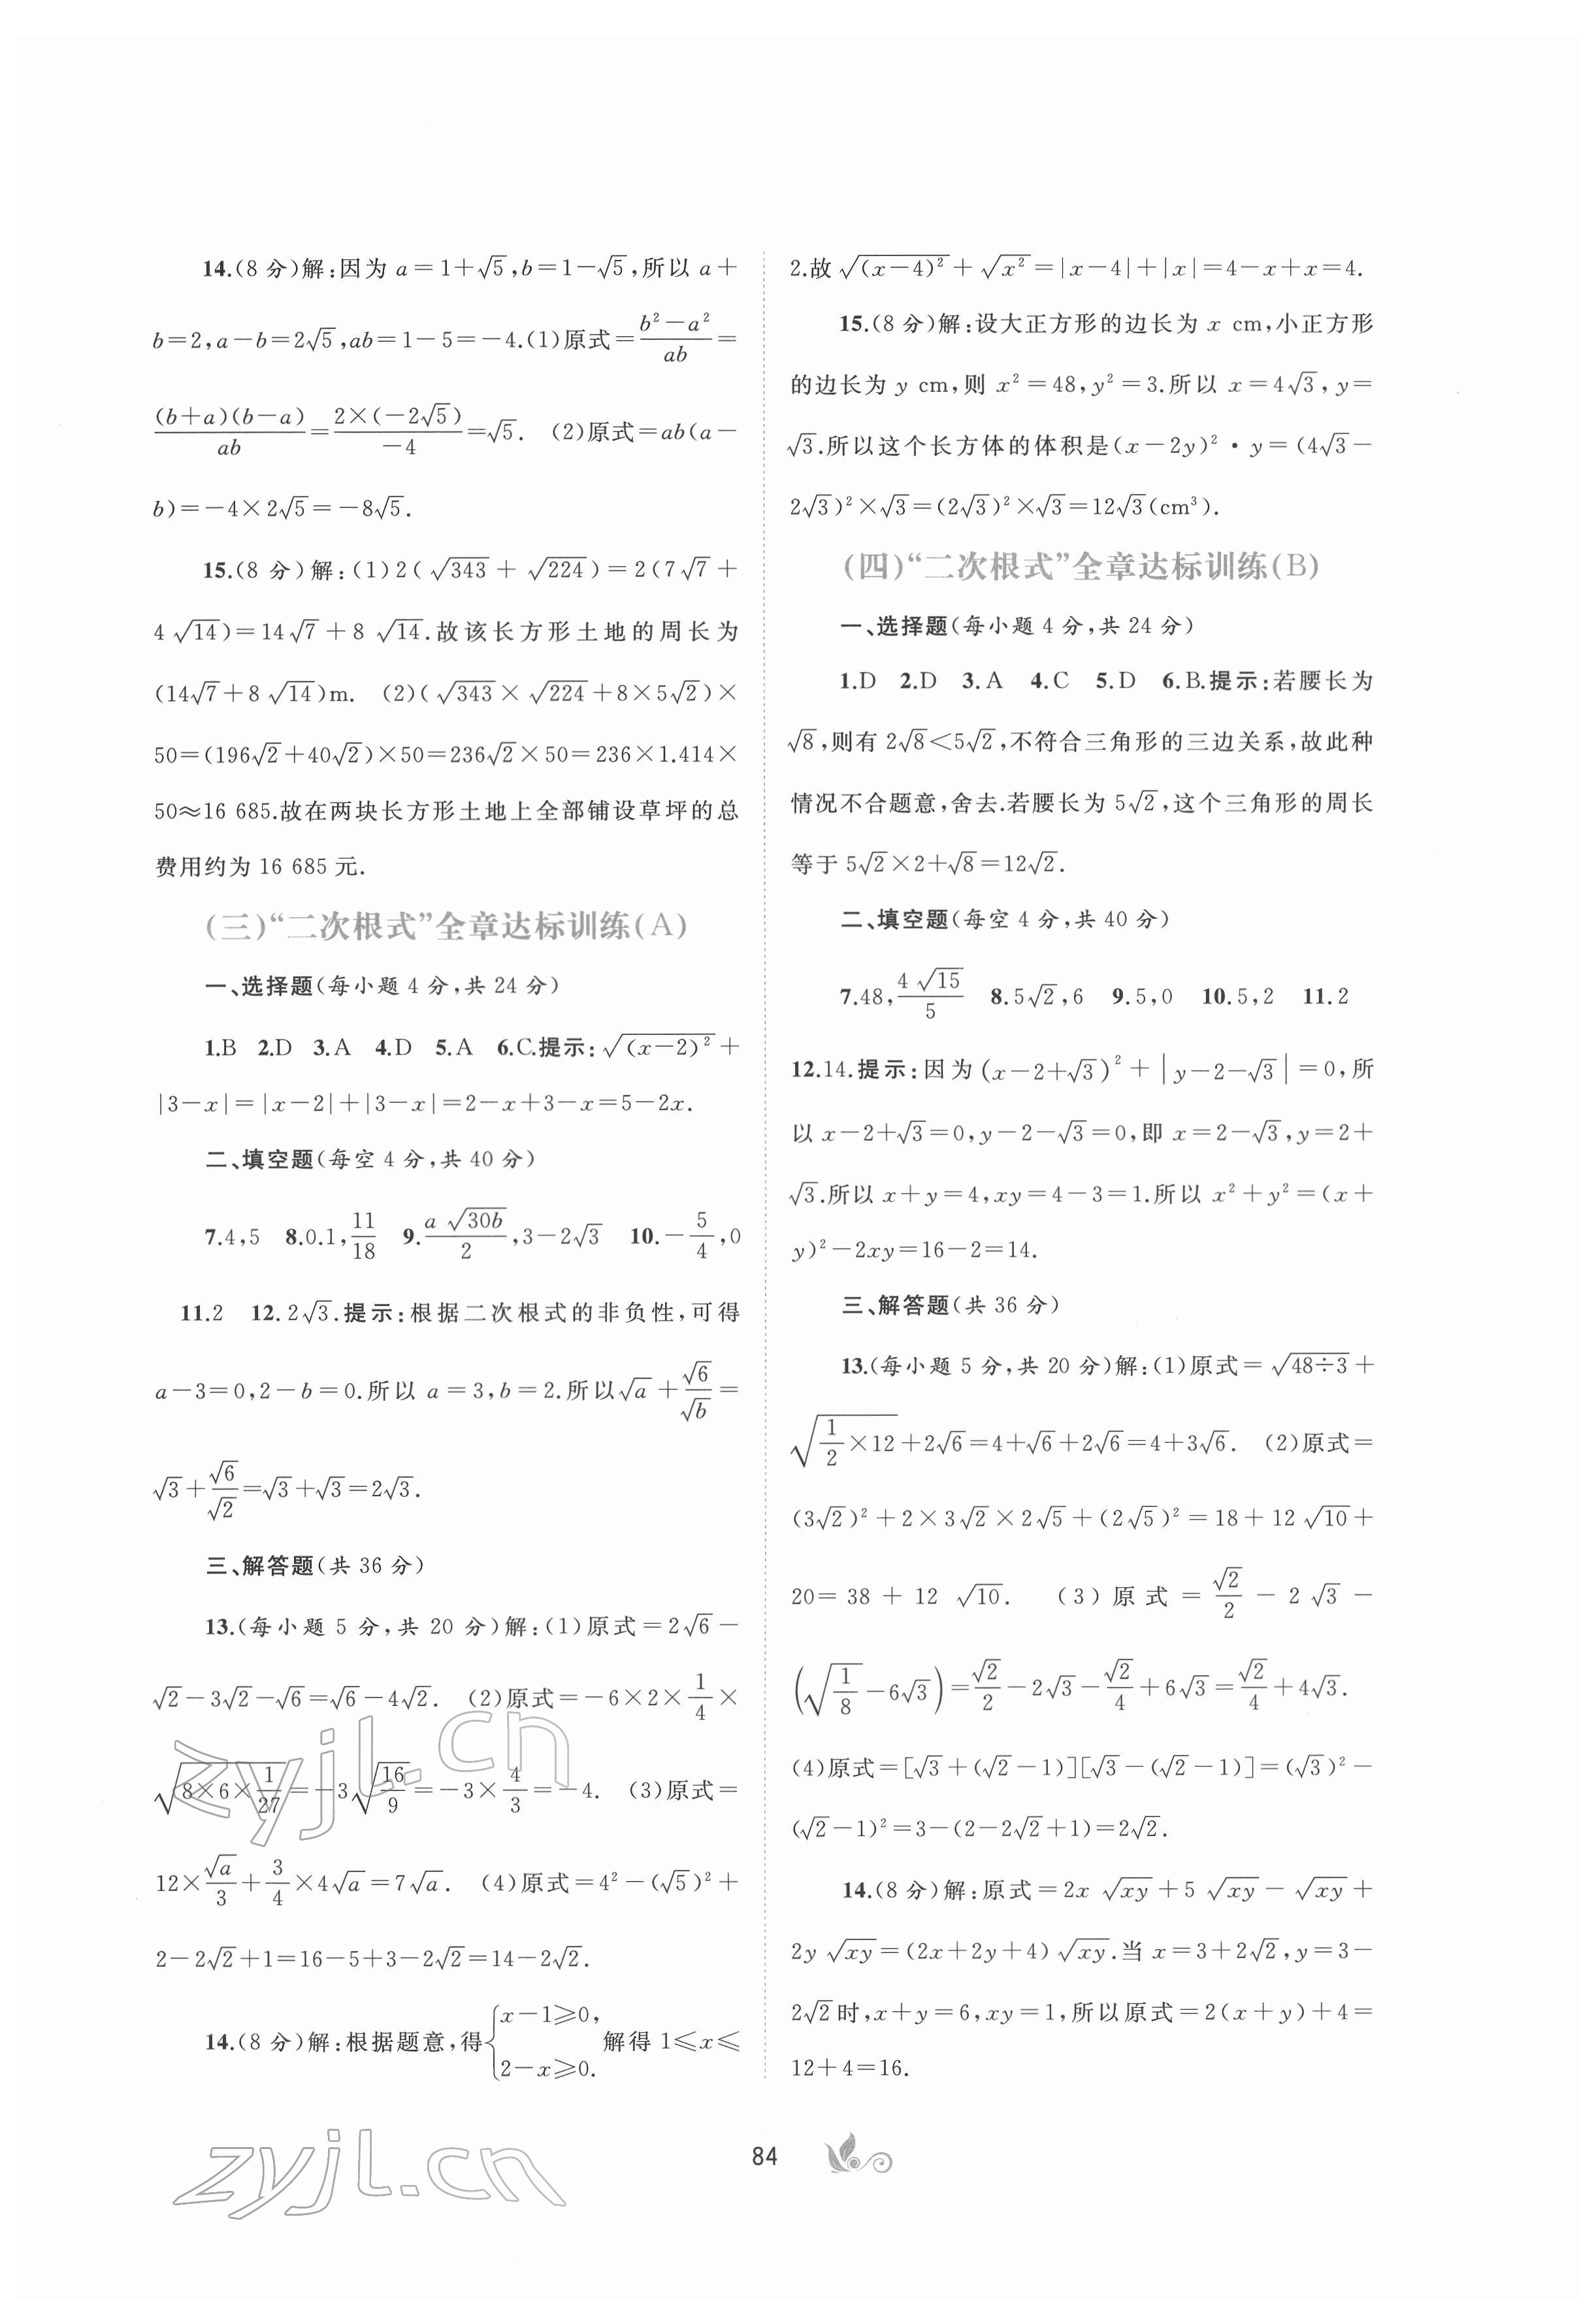 14.(8 分)解:因为 a=1+√5,b=1-√5,所以 a+
b=2,a-b=2√5,ab=1-5=-4.(1)原式=(b²-a²)/(ab)=
((b+a)(b-a))/(ab)=(2×(-2√5))/(-4)=√5. (2)原式=ab(a-
b)=-4×2√5=-8√5.
15.(8 分)解:(1)2(√343+√224)=2(7√7+
4√14)=14√7+8√14.故该长方形土地的周长为
(14√7+8√14)m. (2)(√343×√224+8×5√2)×
50=(196√2+40√2)×50=236√2×50=236×1.414×
50≈16 685.故在两块长方形土地上全部铺设草坪的总
费用约为 16 685 元.
(三)“二次根式”全章达标训练(A)
一、选择题(每小题 4 分,共 24 分)
1.B 2.D 3.A 4.D 5.A 6.C.提示:√((x-2)²)+
|3-x|=|x-2|+|3-x|=2-x+3-x=5-2x.
二、填空题(每空 4 分,共 40 分)
7.4,5 8.0.1,11/18 9.(a√(30b))/2,3-2√3 10.-5/4,0
11.2 12.2√3.提示:根据二次根式的非负性,可得
a-3=0,2-b=0.所以 a=3,b=2.所以√a+√6/√b=
√3+√6/√2=√3+√3=2√3.
三、解答题(共 36 分)
13.(每小题 5 分,共 20 分)解:(1)原式=2√6-
√2-3√2-√6=√6-4√2. (2)原式=-6×2×1/4×
√(8×6×1/27)=-3√(16/9)=-3×4/3=-4. (3)原式=
12×√a/3+3/4×4√a=7√a. (4)原式=4²-(√5)²+
2-2√2+1=16-5+3-2√2=14-2√2.
14.(8 分)解:根据题意,得{x-1≥0, 2-x≥0. 解得 1≤x≤
2.故√((x-4)²)+√(x²)=|x-4|+|x|=4-x+x=4.
15.(8 分)解:设大正方形的边长为 x cm,小正方形
的边长为 y cm,则 x²=48,y²=3.所以 x=4√3,y=
√3.所以这个长方体的体积是(x-2y)²·y=(4√3-
2√3)²×√3=(2√3)²×√3=12√3(cm³).
(四)“二次根式”全章达标训练(B)
一、选择题(每小题 4 分,共 24 分)
1.D 2.D 3.A 4.C 5.D 6.B.提示:若腰长为
√8,则有 2√8<5√2,不符合三角形的三边关系,故此种
情况不合题意,舍去.若腰长为 5√2,这个三角形的周长
等于 5√2×2+√8=12√2.
二、填空题(每空 4 分,共 40 分)
7.48,(4√15)/5 8.5√2,6 9.5,0 10.5,2 11.2
12.14.提示:因为(x-2+√3)²+|y-2-√3|=0,所
以 x-2+√3=0,y-2-√3=0,即 x=2-√3,y=2+
√3.所以 x+y=4,xy=4-3=1.所以 x²+y²=(x+
y)²-2xy=16-2=14.
三、解答题(共 36 分)
13.(每小题 5 分,共 20 分)解:(1)原式=√(48÷3)+
√(1/2×12)+2√6=4+√6+2√6=4+3√6. (2)原式=
(3√2)²+2×3√2×2√5+(2√5)²=18+12√10+
20=38+12√10. (3)原式=√2/2-2√3-
(√(1/8)-6√3)=√2/2-2√3-√2/4+6√3=√2/4+4√3.
(4)原式=[√3+(√2-1)][√3-(√2-1)]=(√3)²-
(√2-1)²=3-(2-2√2+1)=2√2.
14.(8 分)解:原式=2x√(xy)+5√(xy)-√(xy)+
2y√(xy)=(2x+2y+4)√(xy).当 x=3+2√2,y=3-
2√2时,x+y=6,xy=1,所以原式=2(x+y)+4=
12+4=16.
84
zyjl.cn
zyjl.cn